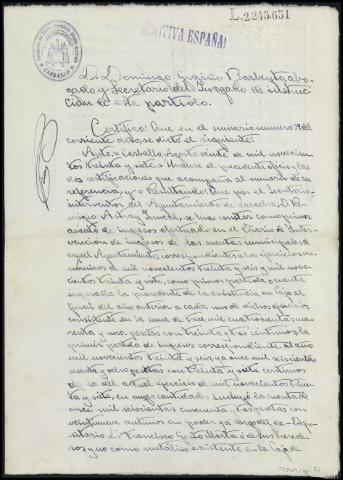 L.2245.651
¡VIVA ESPAÑA!
CARBALLO
D. Domingo Barbeyto, abo-
gado y Secretario del Juzgado de instruc-
ción de este partido.
Certifico: Que en el sumario número del
corriente año, se dictó el siguiente:
Auto.= Carballo, Agosto veinte de mil novecien-
tos treinta y siete.= Únanse el precedente oficio y las
dos certificaciones que acompaña al sumario de su
referencia, y = Resultando: Que por el Secretario
interventor del Ayuntamiento de Laracha, D. Re-
migio Astray se hizo constar como primer
asiento de ingresos efectuado en el Diario de Inter-
vención de ingresos de las cuentas municipales de
aquel Ayuntamiento, correspondientes a los ejercicios eco-
nómicos de mil novecientos treinta y seis y mil nove-
cientos treinta y siete, como primera partida o cuenta
ingresable la procedente de la existencia en Caja al
final del año anterior a cada uno de dichos ejercicios,
consistente en la suma de trece mil cuatrocientas
y una pesetas con treinta y tres céntimos la
primera partida de ingresos correspondiente al año
mil novecientos treinta y seis, y a once mil seiscientas
y ocho pesetas con treinta y siete céntimos
la del actual ejercicio de mil novecientos trein-
ta y siete, en cuyas cantidades incluyó la cuenta de
once mil seiscientas cincuenta y tres pesetas con
veintinueve céntimos en poder y a cargo del ex-Depo-
sitario D. Francisco Gesto Martí o de sus herede-
ros y no como metálico existente en la Caja de